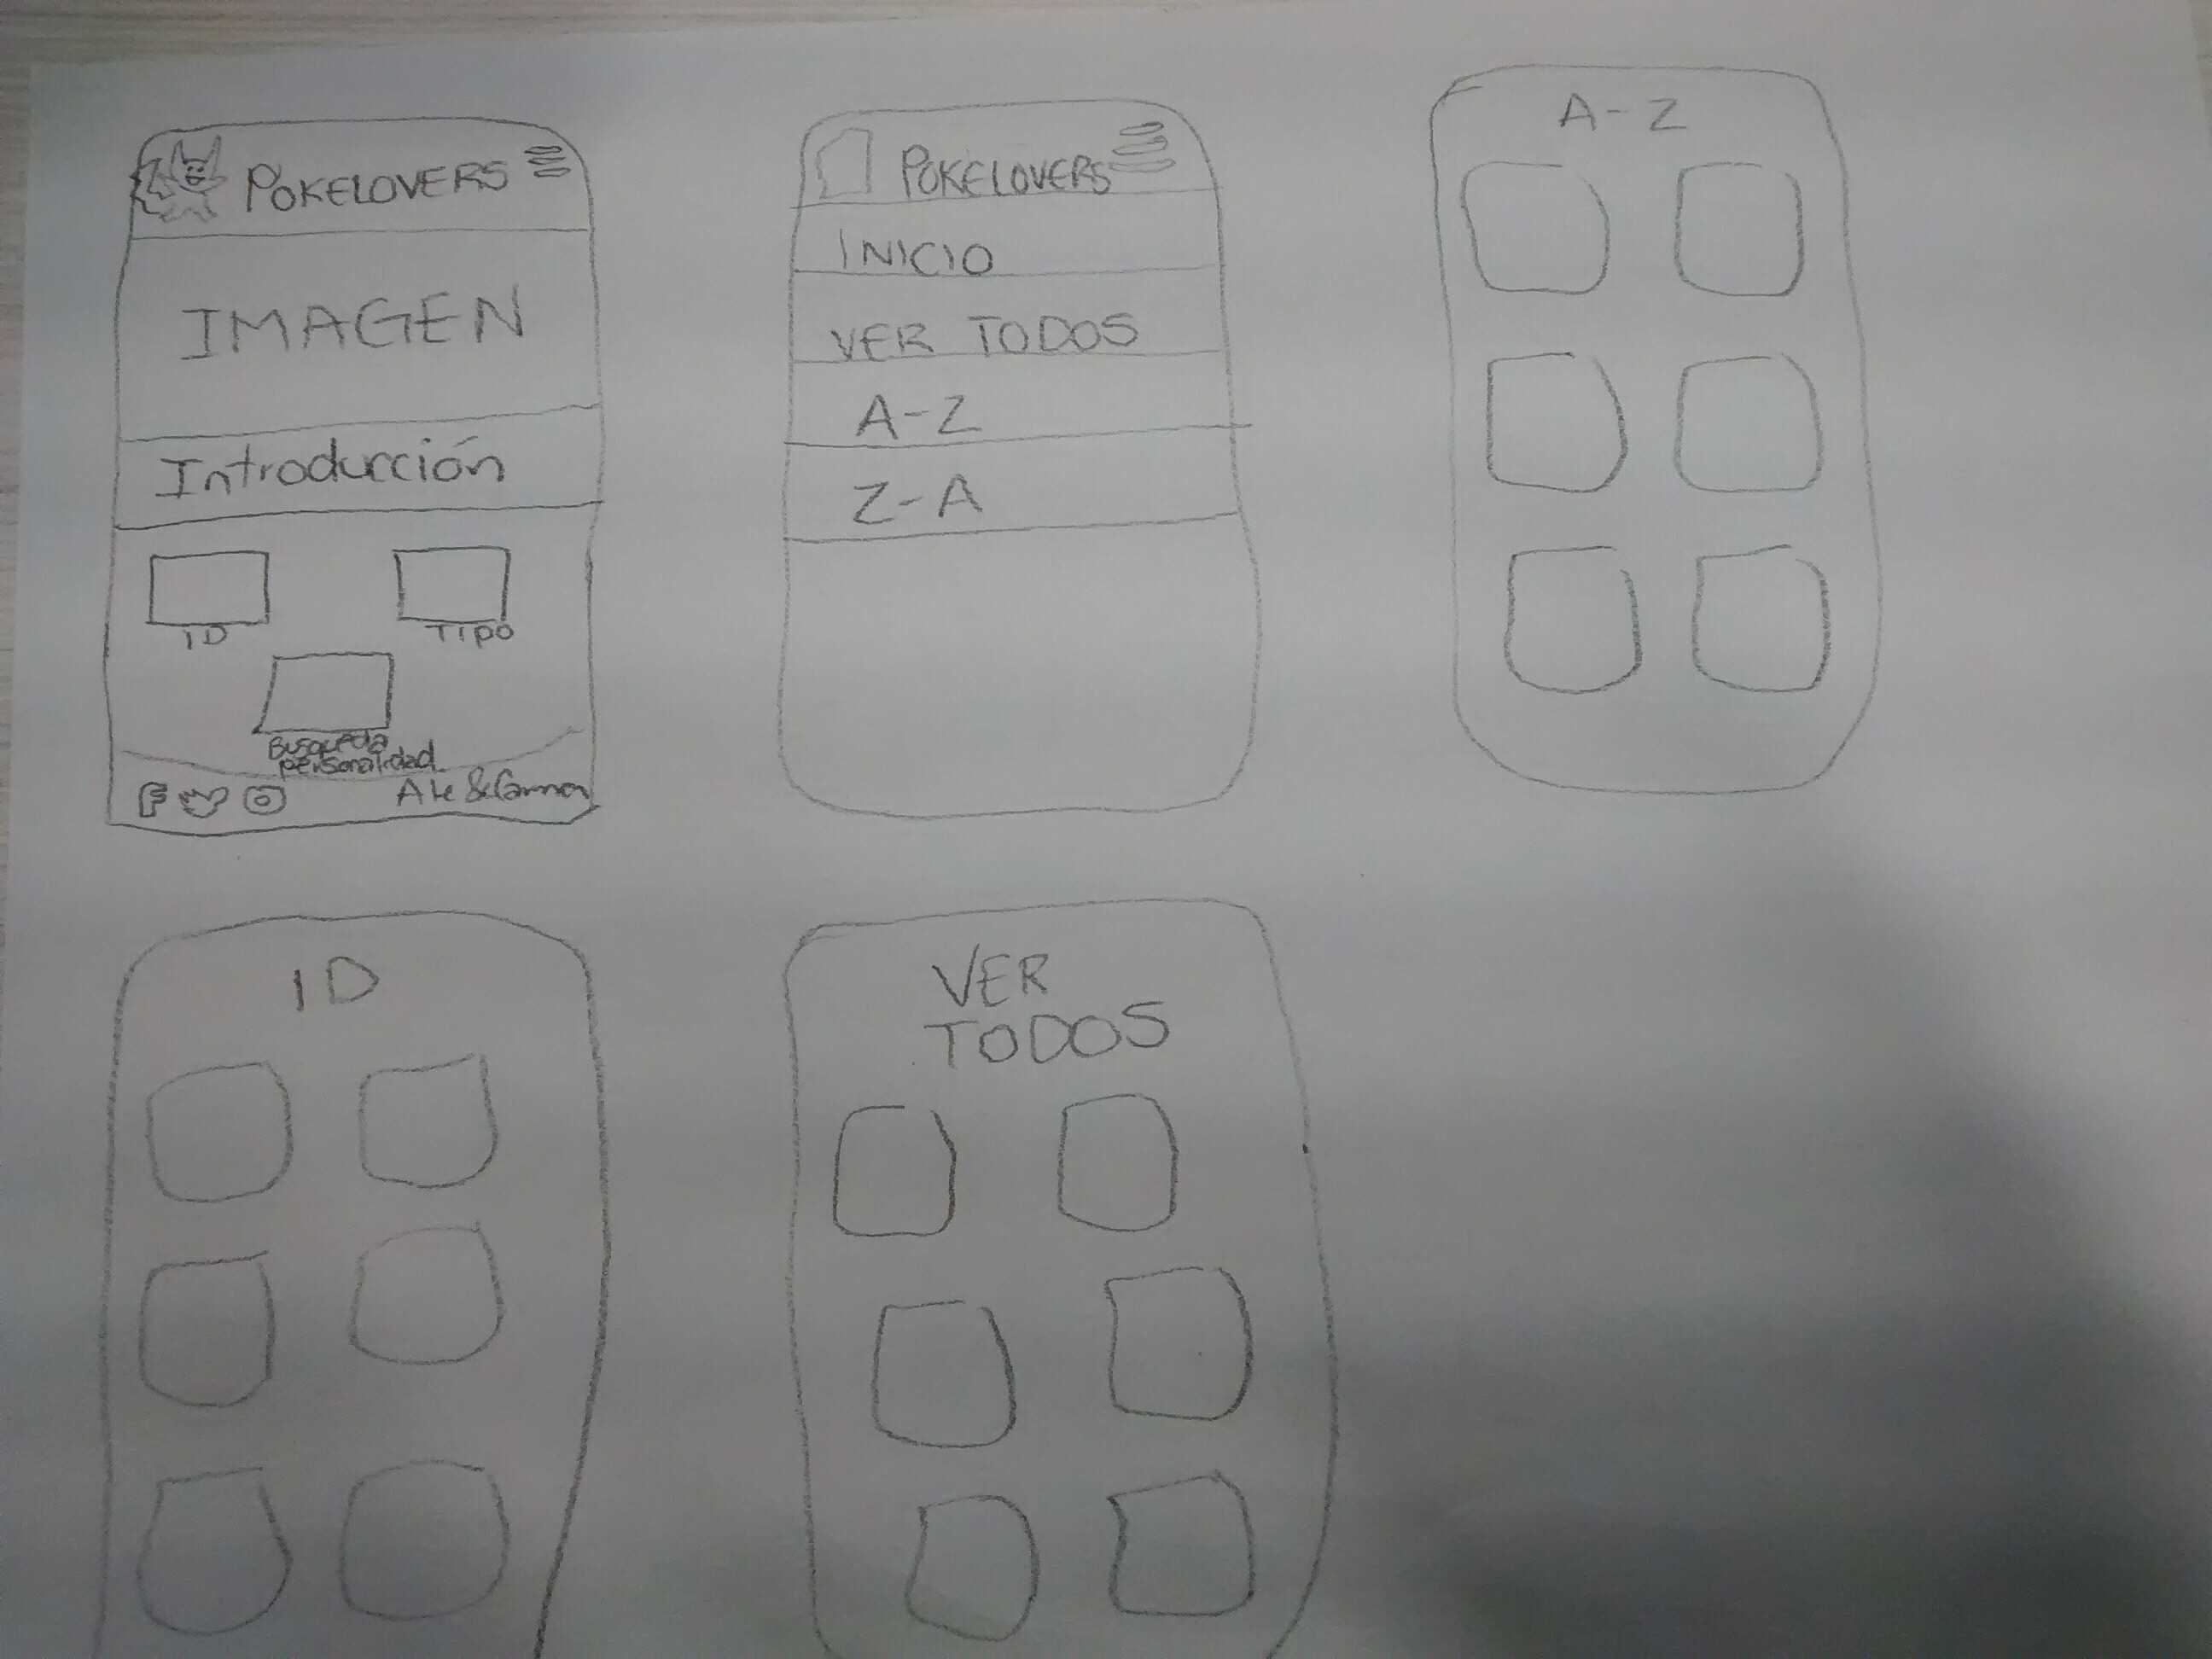 POKELOVERS
IMAGEN
Introducción
ID
TIPO
Busqueda
personalidad
POKELOVERS
INICIO
VER TODOS
A-Z
Z-A
A-Z
ID
VER
TODOS